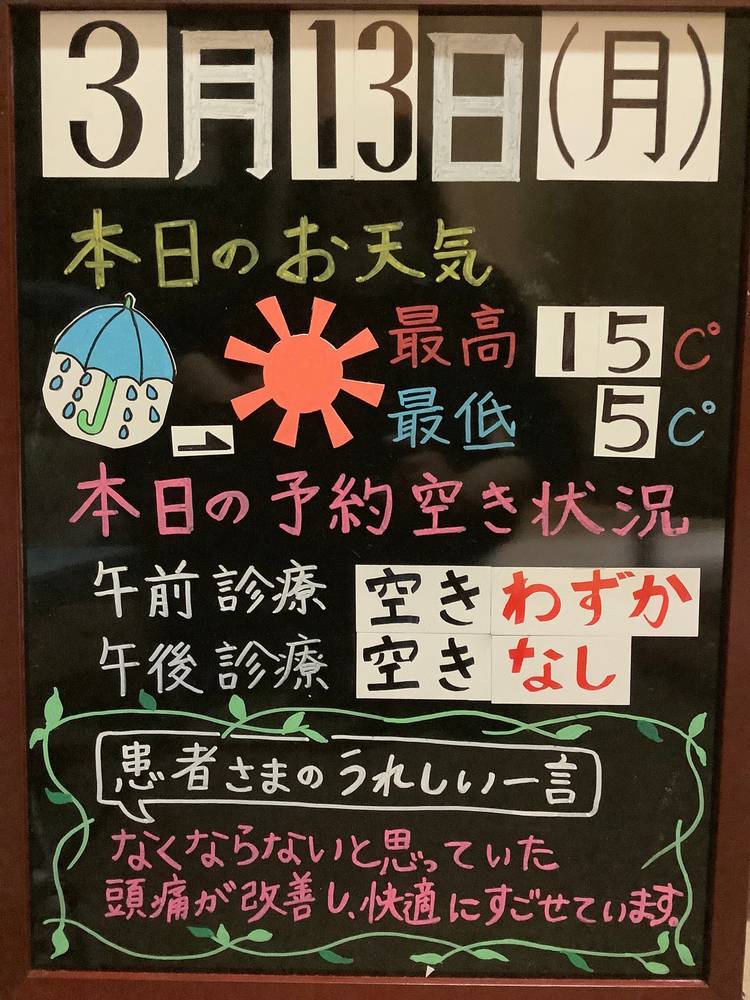 3月13日(月)
本日のお天気
最高 15C°
最低 5C°
本日の予約空き状況
午前診療 空きわずか
午後診療 空きなし
患者さまのうれしい一言
なくならないと思っていた
頭痛が改善し、快適にすごせています。